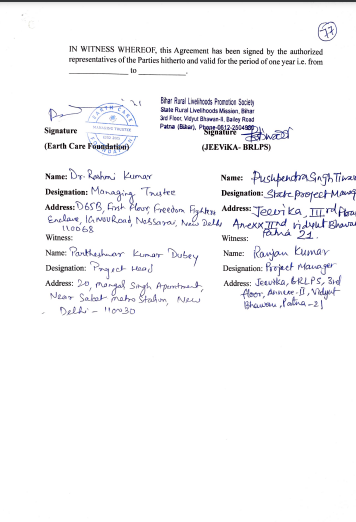 77
IN WITNESS WHEREOF, this Agreement has been signed by the authorized
representatives of the Parties hitherto and valid for the period of one year i.e. from
____________ to ____________.
EARTH CARE
MANAGING TRUSTEE
Bihar Rural Livelihoods Promotion Society
State Rural Livelihoods Mission, Bihar
3rd Floor, Vidyut Bhawan-II, Bailey Road
Patna (Bihar), Phone-0612-2504980
Signature
(Earth Care Foundation)
Signature
(JEEViKA- BRLPS)
Name: Dr. Rashmi Kumar
Designation: Managing Trustee
Address: D65B, First Floor, Freedom Fighters
Enclave, IGNOU Road, Nebsarai, New Delhi
110068
Witness:
Name: Pantheshwar Kumar Dubey
Designation: Project Head
Address: 20, Mangal Singh Apartment,
Near Saket Metro Station, New
Delhi - 110030
Name: Pushpendra Singh Tiwa
Designation: State Project Manag
Address: Jeevika, IIIrd Floor
Anexx IInd Vidyut Bhawa
Patna 21.
Witness:
Name: Ranjan Kumar
Designation: Project Manager
Address: Jeevika, BRLPS, 3rd
floor, Annexe-II, Vidyut
Bhawan, Patna-21